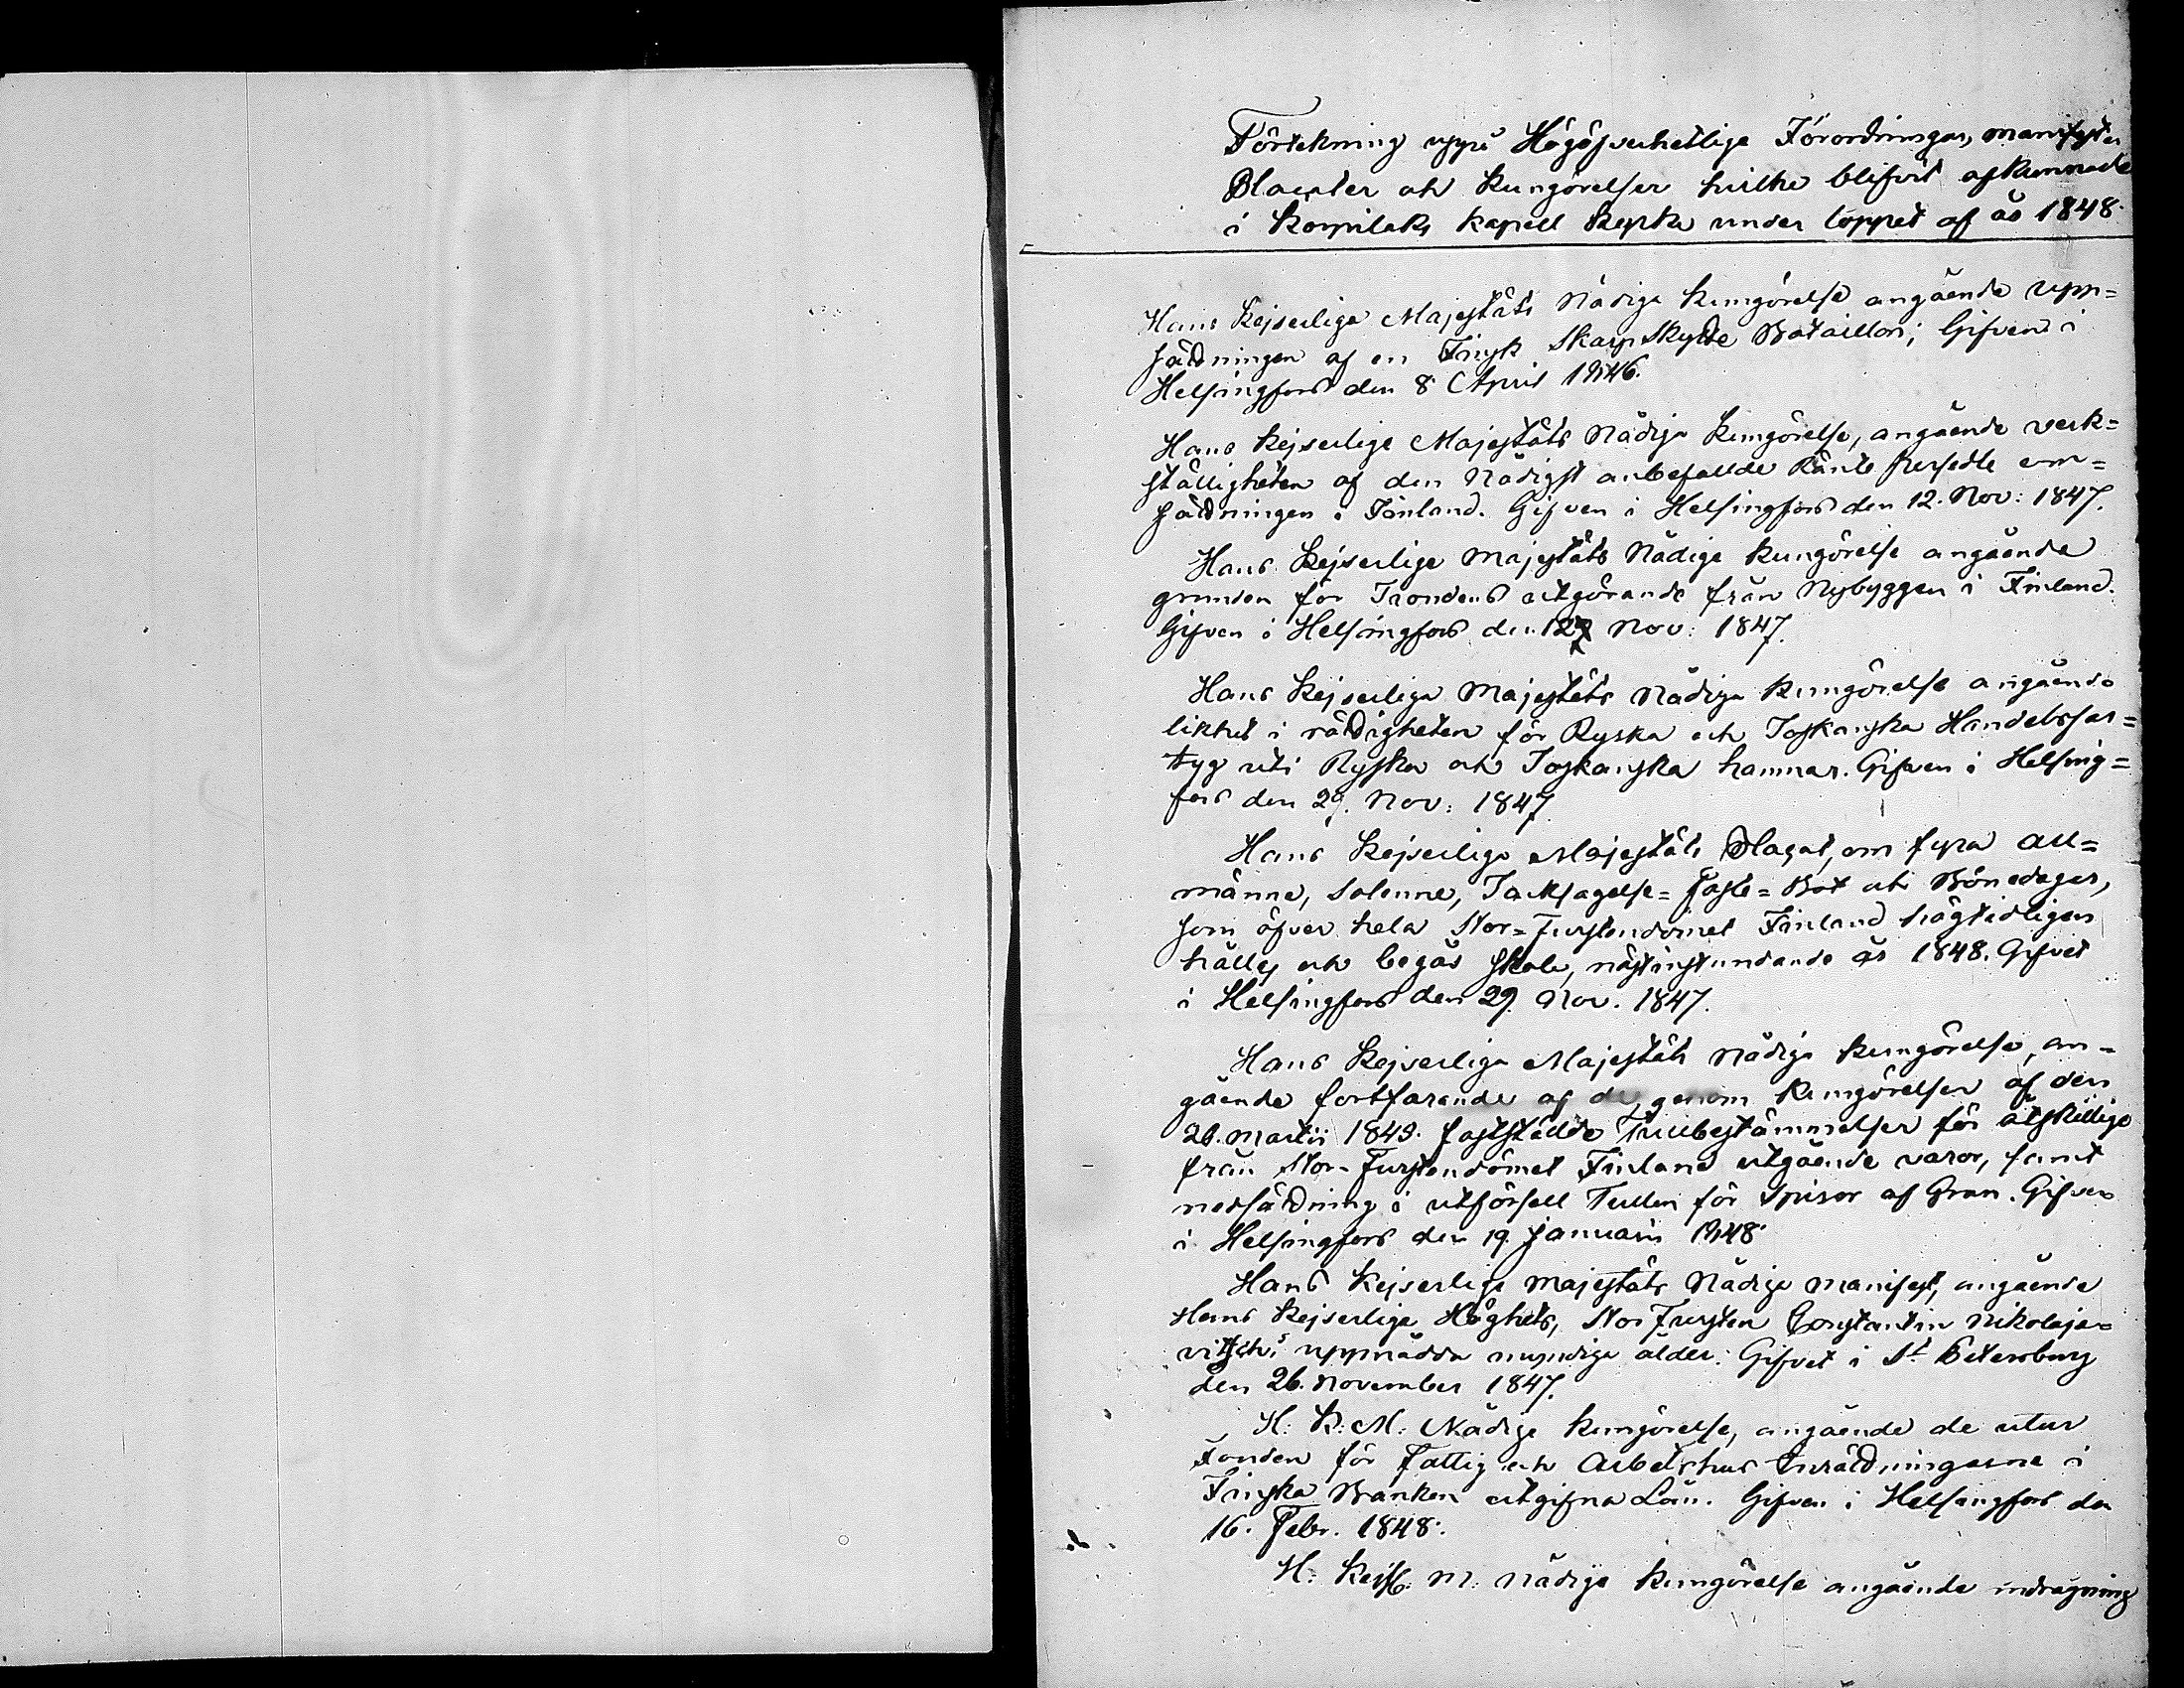 Förtekning uppå Högöfverhetlige Förordningar, manifester
Placater och Kungörelser hvilka blifvit afkunnade
i Korpilaks kapell Kyrka under loppet af år 1848.
Hans Kejserliga Majestäts Nådiga Kungörelse angående upp=
sättningen af en Finsk Skarpskytte Bataillon; Gifven i
Helsingfors den 8 April 1846.
Hans Kejserlige Majestäts Nådiga Kungörelse, angående verk=
ställigheten af den Nådigst anbefallde Ränte persedle om=
sättningen i Finland. Gifven i Helsingfors den 12. Nov: 1847.
Hans Kejserlige Majestäts Nådige Kungörelse angående
grunden för Tiondens utgörande från Nybyggen i Finland.
Gifven i Helsingfors den 12 Nov: 1847.
Hans Kejserliga Majestäts Nådiga Kungörelse angående
likhet i rättigheten för Ryska och Toskanska Handelsfar=
tyg uti Ryska och Toskanska hamnar. Gifven i Helsing=
fors den 29. Nov: 1847.
Hans Kejserliga Majestäts Placat, om fyra all=
männa, solenne, Tacksägelse= Faste= Bot och Bönedagar,
som öfver hela Stor=Furstendömet Finland högtidligen
hållas och begås skola, nästinstundande år 1848. Gifvet
i Helsingfors den 29. Nov. 1847.
Hans Kejserliga Majestäts Nådiga Kungörelse, an=
gående fortfarande af de genom Kungörelser af den
26. Martii 1843. fastställde Tullbestämmelser för åtskillige
från Stor-Furstendömet Finland utgående varor, samt
nedsättning i utförsell Tullen för Spiror af Gran. Gifven
i Helsingfors den 19. Januarii 1848.
Hans Kejserlige Majestäts Nådige Manifest, angående
Hans Kejserlige Höghets, StorFursten Constantin Nikolaje=
vitsch's uppnådda myndiga ålder. Gifvet i St Petersburg
den 26. November 1847.
H: K: M: Nådige Kungörelse, angående de utur
Fonden för Fattig och Arbetshus Inrättningarne i
Finska Banken utgifna Lån. Gifven i Helsingfors den
16. Febr. 1848.
H: Kejs: M: Nådige Kungörelse angående indragning